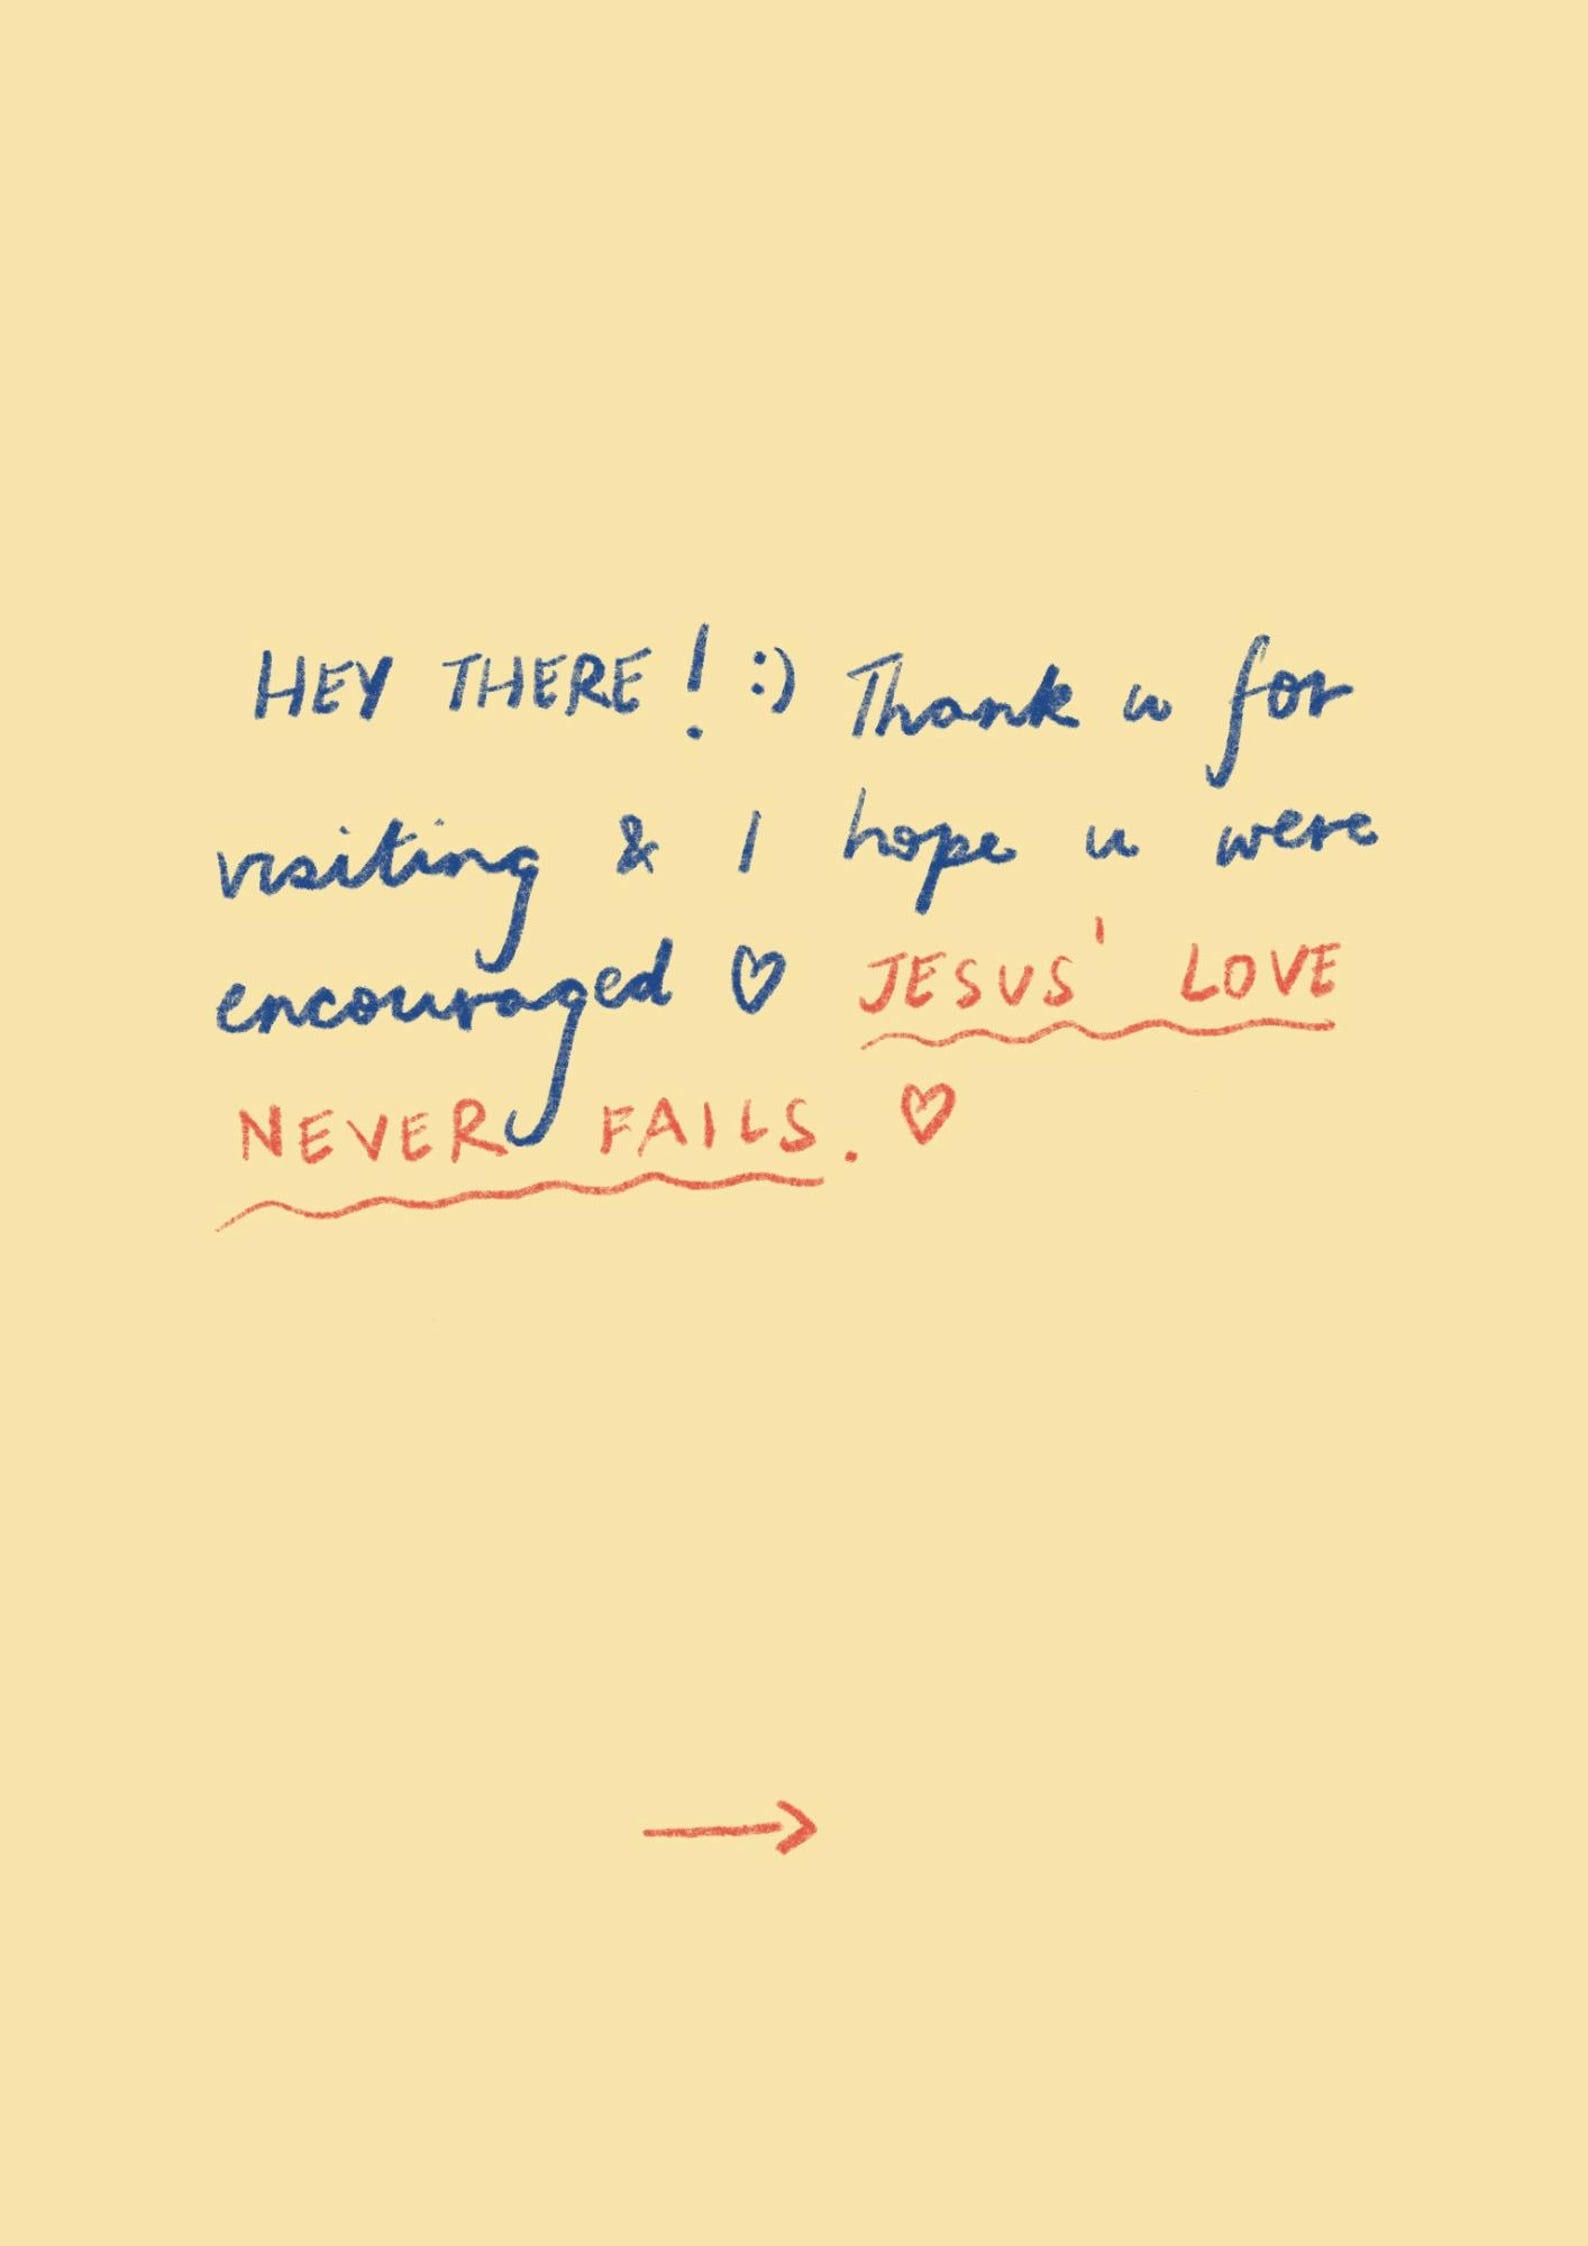 HEY THERE! :) Thank u for
visiting & I hope u were
encouraged ♡ JESUS' LOVE
NEVER FAILS. ♡
→